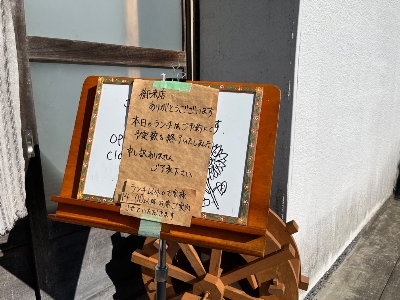 御来店
ありがとうございます
本日のランチはご予約にて
予定数を終了いたしました
申し訳ありません
ご了承下さい
ランチ以外のお客様
OP
Clo